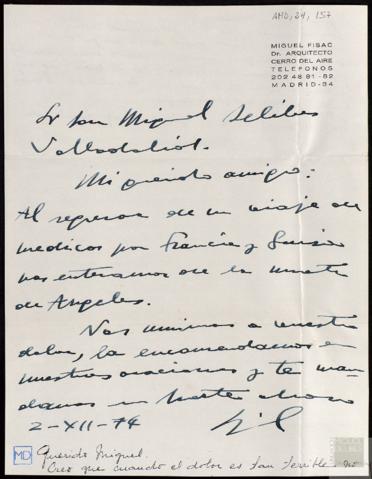 AMD, 24, 157
MIGUEL FISAC
Dr. ARQUITECTO
CERRO DEL AIRE
TELEFONOS
202 48 81 - 82
MADRID-34
Sr Don Miguel Delibes
Valladolid.
Mi querido amigo:
Al regresar de un viaje de
medicos por Francia y Suiza
nos enteramos de la muerte
de Angeles.
Nos unimos a vuestro
dolor, la encomendamos en
nuestras oraciones y te man-
damos un fuerte abrazo
2-XII-74
MD
Querido Miguel.
"Creo que cuando el dolor es tan terrible no